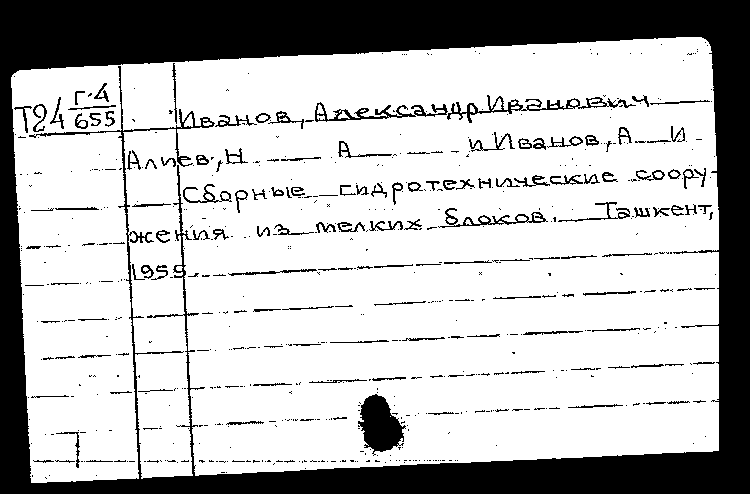 Т24 Г-4
655
Иванов, Александр Иванович
Алиев, Н А и Иванов, А И
Сборные гидротехнические соору-
жения из мелких блоков. Ташкент,
1955.